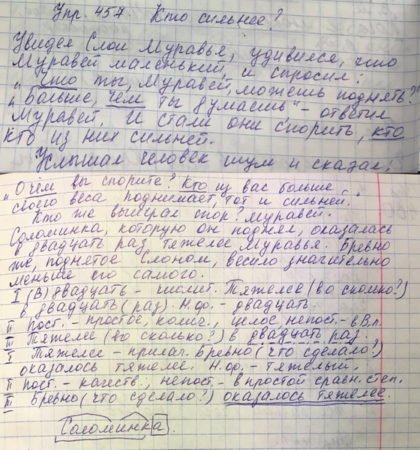 Упр. 457. Кто сильнее?
Увидел Слон Муравья, удивился, что
Муравей маленький, и спросил:
"Что ты, Муравей, можешь поднять?"
"Больше, чем ты думаешь" - ответил
Муравей. И стали они спорить, кто
кто из них сильней.
Услышал человек шум и сказал:
"О чём вы спорите? Кто из вас больше
своего веса поднимает, тот и сильней."
Кто же выиграл спор? Муравей.
Соломинка, которую он поднял, оказалась
в двадцать раз тяжелее Муравья. Бревно
же поднятое Слоном, весило значительно
меньше его самого.
I (В) двадцать - числит. Тяжелее (во сколько?)
в двадцать (раз). Н.ф. - двадцать.
II пост. - простое, колич., целое, непост. - в В.п.
III Тяжелее (во сколько?) в двадцать раз.
I Тяжелее - прилаг. Бревно (что сделало?)
оказалось тяжелее. Н.ф. - тяжелый.
II пост. - качеств., непост. - в простой сравн. степ.
III Бревно (что сделало?) оказалось тяжелее.
Соломинка.